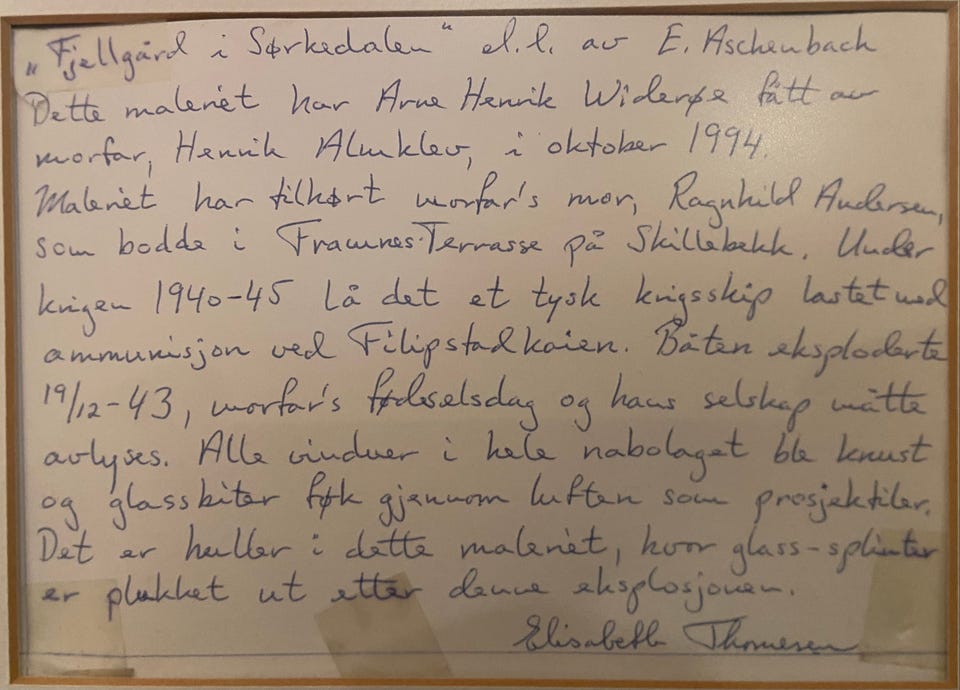 „Fjellgård i Sørkedalen" el.l. av E. Aschenbach
Dette maleriet har Arne Henrik Widerøe fått av
morfar, Henrik Almklov, i oktober 1994.
Maleriet har tilhørt morfar's mor, Ragnhild Andersen,
som bodde i Framnes Terrasse på Skillebekk. Under
krigen 1940-45 lå det et tysk krigsskip lastet med
ammunisjon ved Filipstadkaien. Båten eksploderte
19/12-43, morfar's fødselsdag og hans selskap måtte
avlyses. Alle vinduer i hele nabolaget ble knust
og glassbiter føk gjennom luften som prosjektiler.
Det er huller i dette maleriet, hvor glass-splinter
er plukket ut etter denne eksplosjonen.
Elisabeth Thomesen